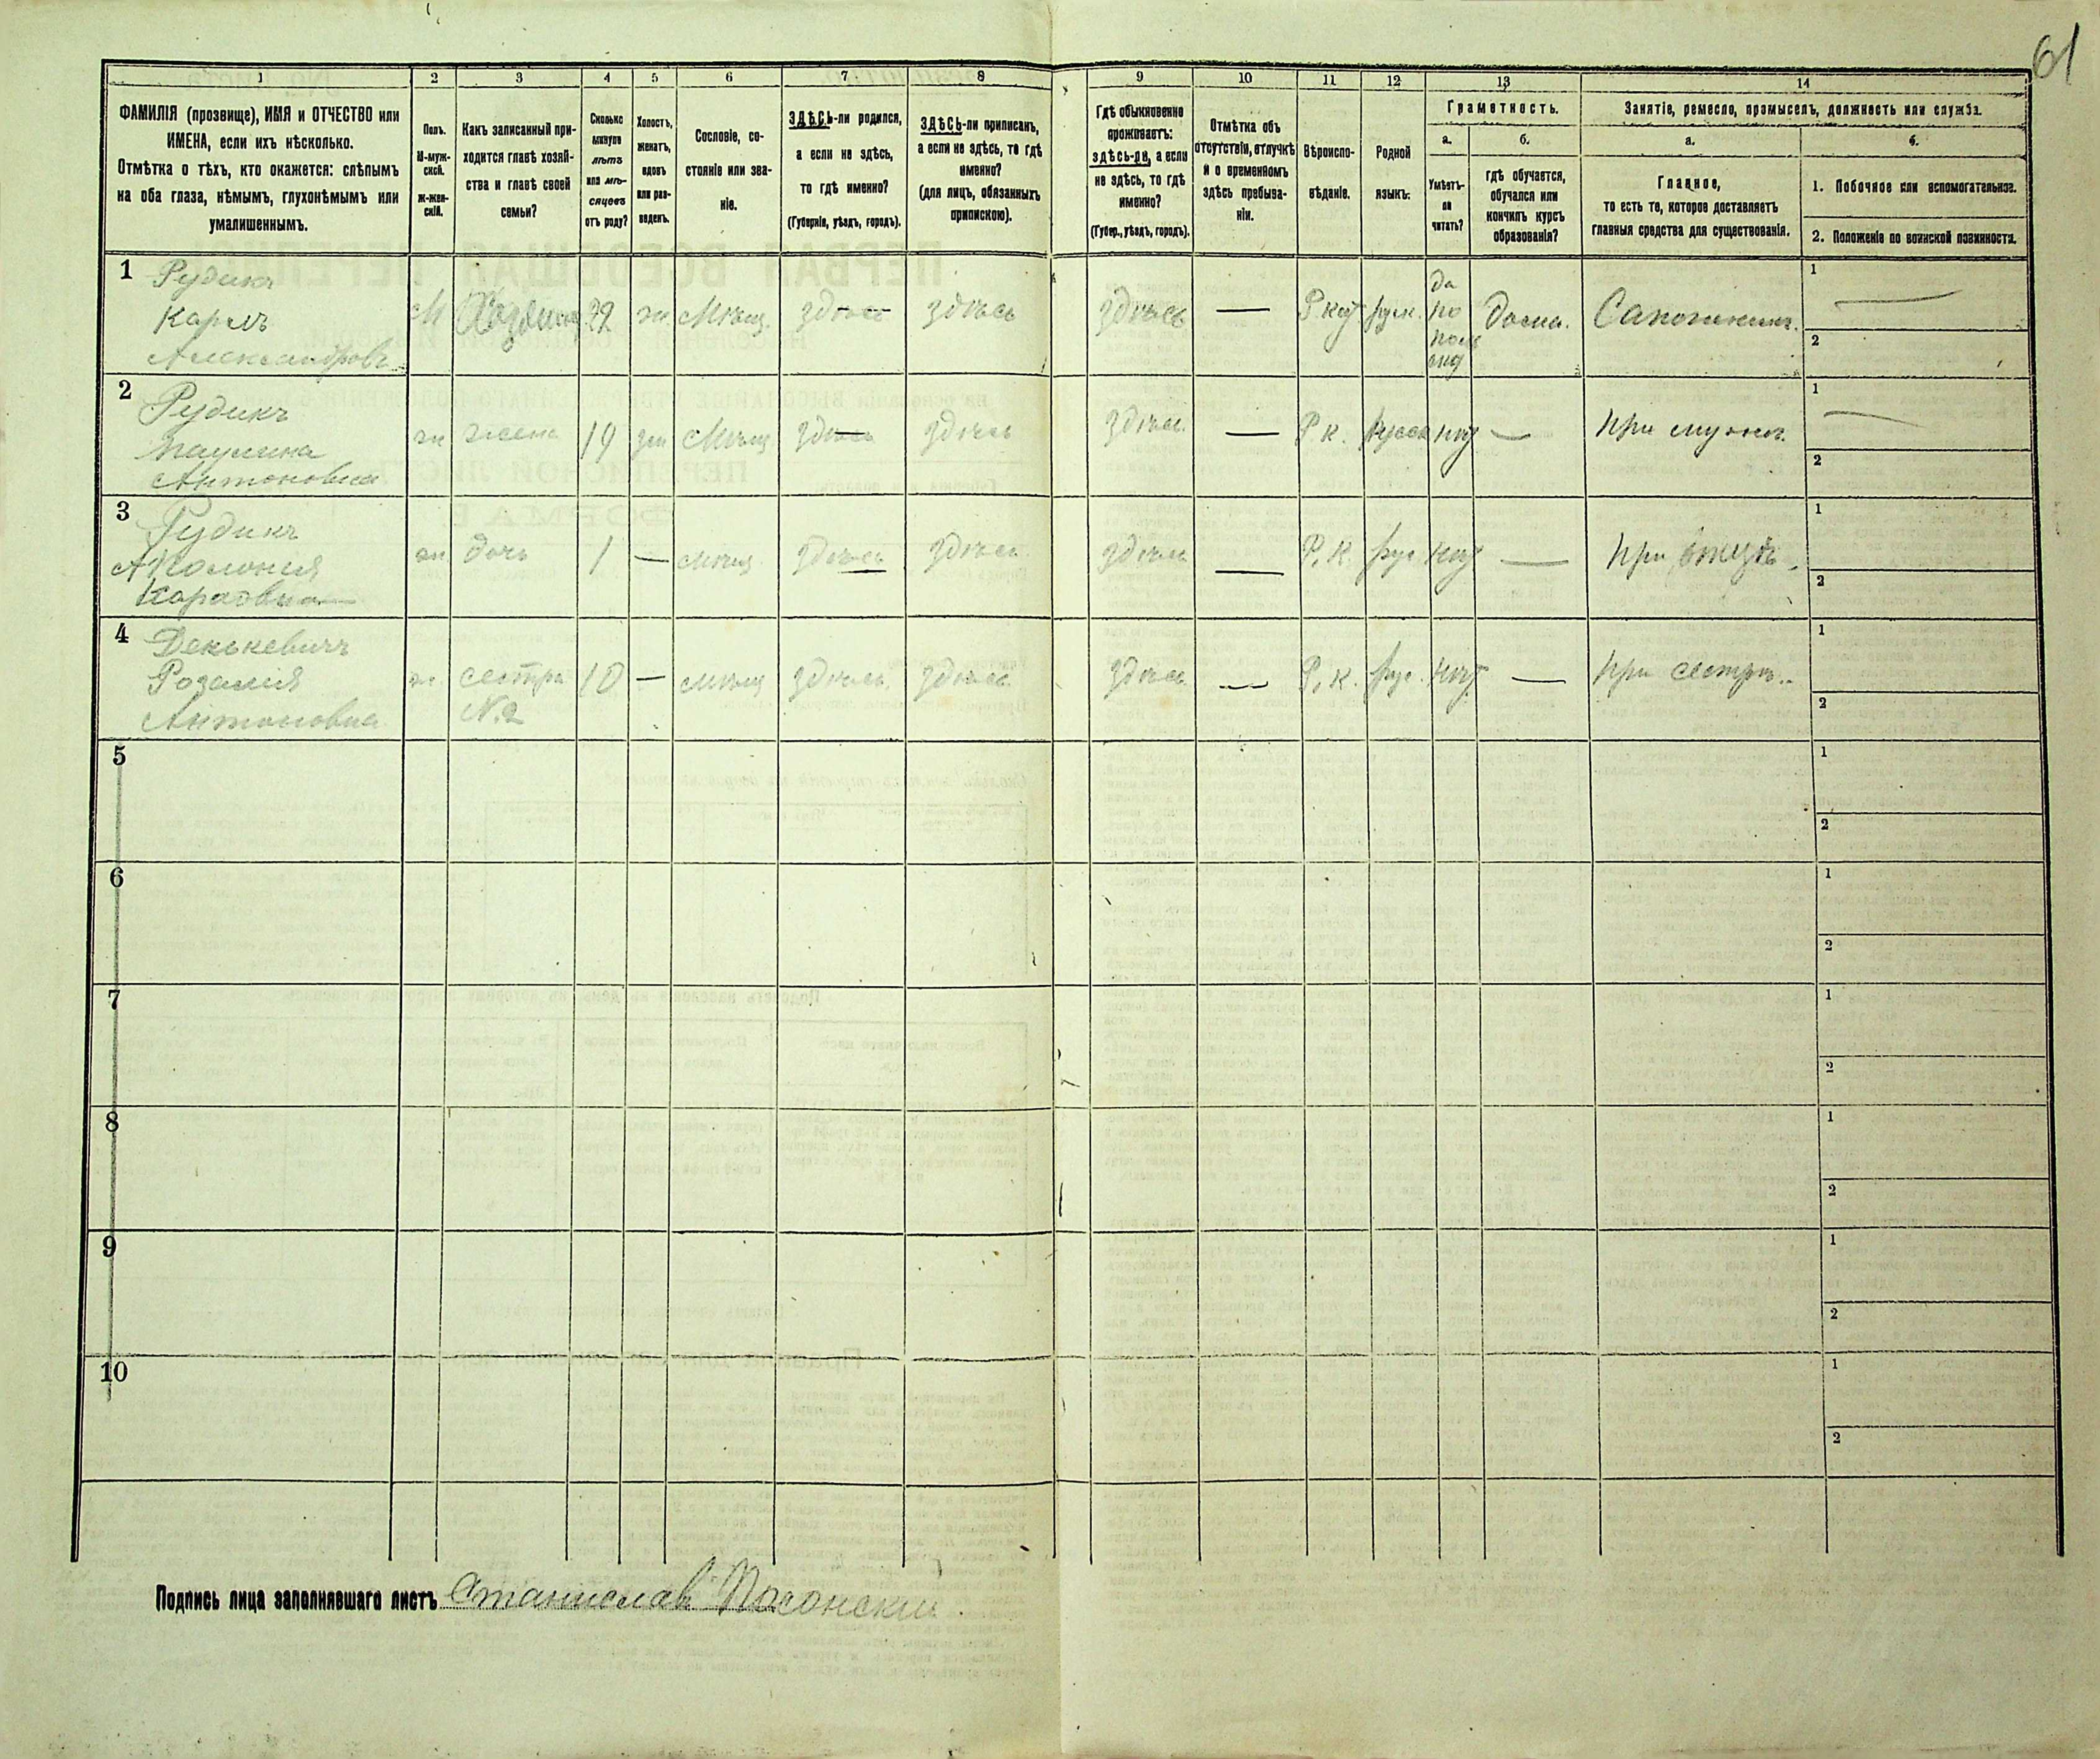 61
1 2 3 4 5 6 7 8 9 10 11 12 13 14
ФАМИЛІЯ (прозвище), ИМЯ и ОТЧЕСТВО или
ИМЕНА, если ихъ нѣсколько.
Отмѣтка о тѣхъ, кто окажется: слѣпымъ
на оба глаза, нѣмымъ, глухонѣмымъ или
умалишеннымъ.
Полъ.
М-муж-
ской.
ж-жен-
скій.
Какъ записанный при-
ходится главѣ хозяй-
ства и главѣ своей
семьи?
Сколько
минуло
лѣтъ
или мѣ-
сяцевъ
отъ роду?
Холостъ,
женатъ,
вдовъ
или раз-
веденъ.
Сословіе, со-
стояніе или зва-
ніе.
ЗДѢСЬ-ли родился,
а если не здѣсь,
то гдѣ именно?
(Губернія, уѣздъ, городъ).
ЗДѢСЬ-ли приписанъ,
а если не здѣсь, то гдѣ
именно?
(для лицъ, обязанныхъ
припискою).
Гдѣ обыкновенно
проживаетъ:
здѣсь-ли, а если
не здѣсь, то гдѣ
именно?
(Губер., уѣздъ, городъ).
Отмѣтка объ
отсутствіи, отлучкѣ
и о временномъ
здѣсь пребыва-
ніи.
Вѣроиспо-
вѣданіе.
Родной
языкъ.
Грамотность.
а.
Умѣетъ-
ли
читать?
б.
гдѣ обучается,
обучался или
кончилъ курсъ
образованія?
Занятіе, ремесло, промыселъ, должность или служба.
а.
Главное,
то есть то, которое доставляетъ
главныя средства для существованія.
б.
1. Побочное или вспомогательное.
2. Положеніе по воинской повинности.
1
Рудикъ
Карлъ
Александровъ
М Хозяинъ ж. Мѣщ. здѣсь здѣсь здѣсь — Р кат рус.
да
по
дома. Сапожникъ.
1 —
2
2
Рудикъ
Паулина
Антоновна
ж жена 19 зам Мѣщ здѣсь здѣсь здѣсь — Р к. русск нѣт — при мужѣ.
1 —
2
3
Рудикъ
Аполонія
Карловна
ж дочь 1 — мѣщ здѣсь здѣсь здѣсь — Р. к. рус. нѣт — при отцѣ
1
2
4
Денькевичъ
Розалія
Антоновна
ж. сестра
№ 2
10 — мѣщ здѣсь здѣсь здѣсь — Р. к. рус. нѣт — при сестрѣ.
1
2
5
1
2
6
1
2
7
1
2
8
1
2
9
1
2
10
1
2
Подпись лица заполнявшаго листъ Станислав